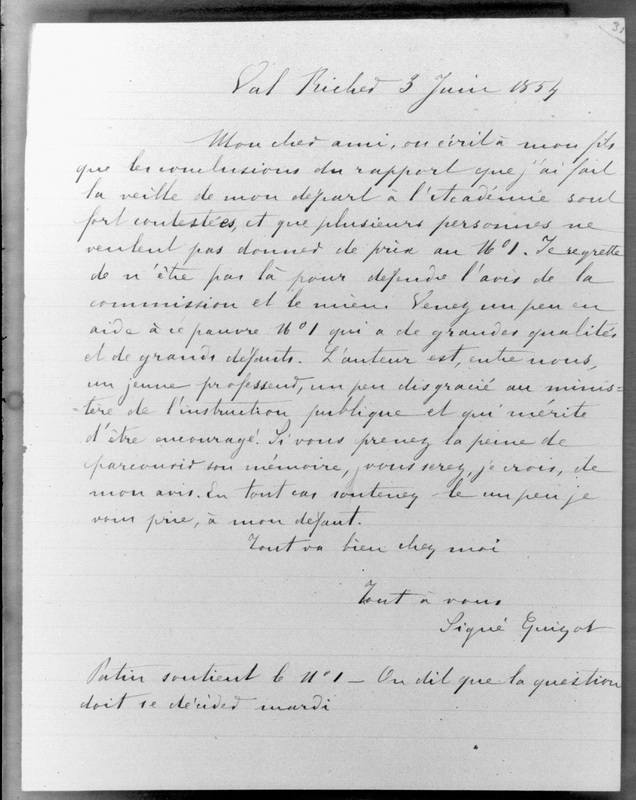 31
Val Richer 3 Juin 1854
Mon cher ami, on écrit à mon fils
que les conclusions du rapport que j'ai fait
la veille de mon départ à l'Académie sont
fort contestées, et que plusieurs personnes ne
veulent pas donner de prix au No 1. Je regrette
de n'être pas là pour défendre l'avis de la
commission et le mien. Venez un peu en
aide à ce pauvre No 1 qui a de grandes qualités
et de grands défauts. L'auteur est, entre nous,
un jeune professeur, un peu disgracié au minis=
=tère de l'instruction publique et qui mérite
d'être encouragé. Si vous prenez la peine de
parcourir son mémoire, vous serez, je crois, de
mon avis. En tout cas soutenez-le un peu je
vous prie, à mon défaut.
Tout va bien chez moi
Tout à vous
Signé Guizot
Patin soutient le No 1 — On dit que la question
doit se décider mardi